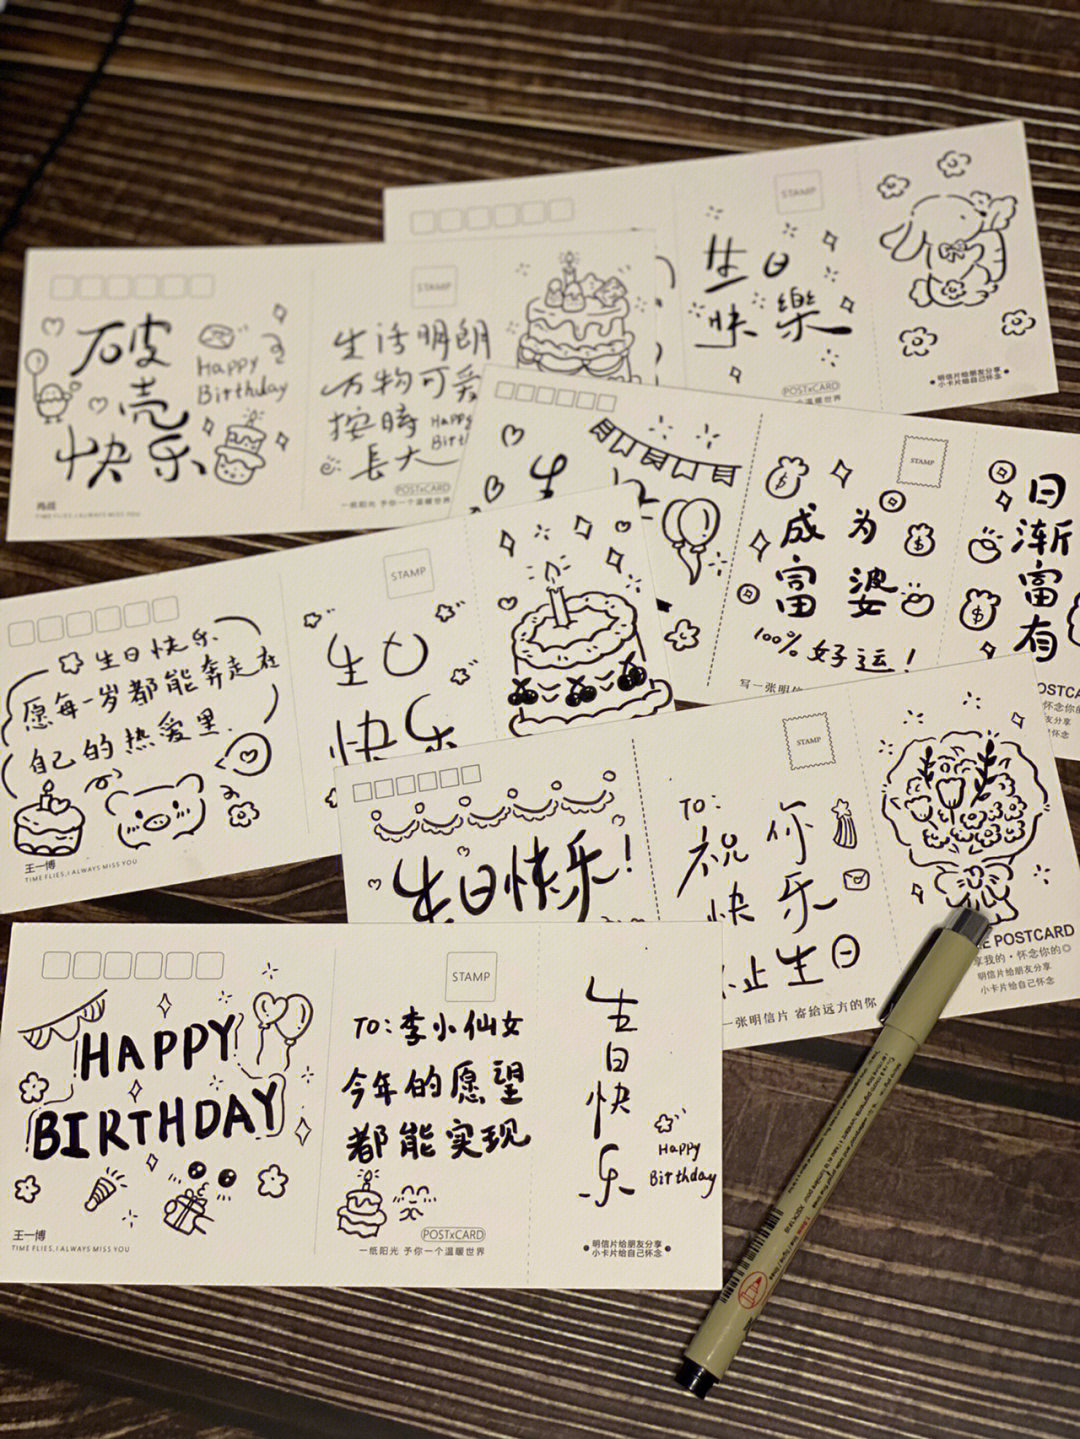 STAMP
生日
快樂
POSTxCARD
个温暖世界
明信片给朋友分享
小卡片给自己怀念
破
壳
快乐
Happy
Birthday
TIME FLIES,I ALWAYS MISS YOU
STAMP
生活明朗
万物可爱
按時
長大
Happy
Birt
POSTxCARD
一纸阳光 予你一个温暖世界
生
STAMP
成为
富婆
100% 好运!
写一张明信
日
渐
富
有
OSTCA
怀念你的
友分享
己怀念
生日快乐
愿每一岁都能奔走在
自己的热爱里.
王一博
TIME FLIES,I ALWAYS MISS YOU
STAMP
生日
快乐
生日快乐!
STAMP
TO:
祝你
快乐
不止生日
一张明信片 寄给远方的你
E POSTCARD
享我的·怀念你的
明信片给朋友分享
小卡片给自己怀念
HAPPY
BIRTHDAY
王一博
TIME FLIES,I ALWAYS MISS YOU
STAMP
TO:李小仙女
今年的愿望
都能实现
POSTxCARD
一纸阳光 予你一个温暖世界
生
日
快
乐
Happy
Birthday
明信片给朋友分享
小卡片给自己怀念